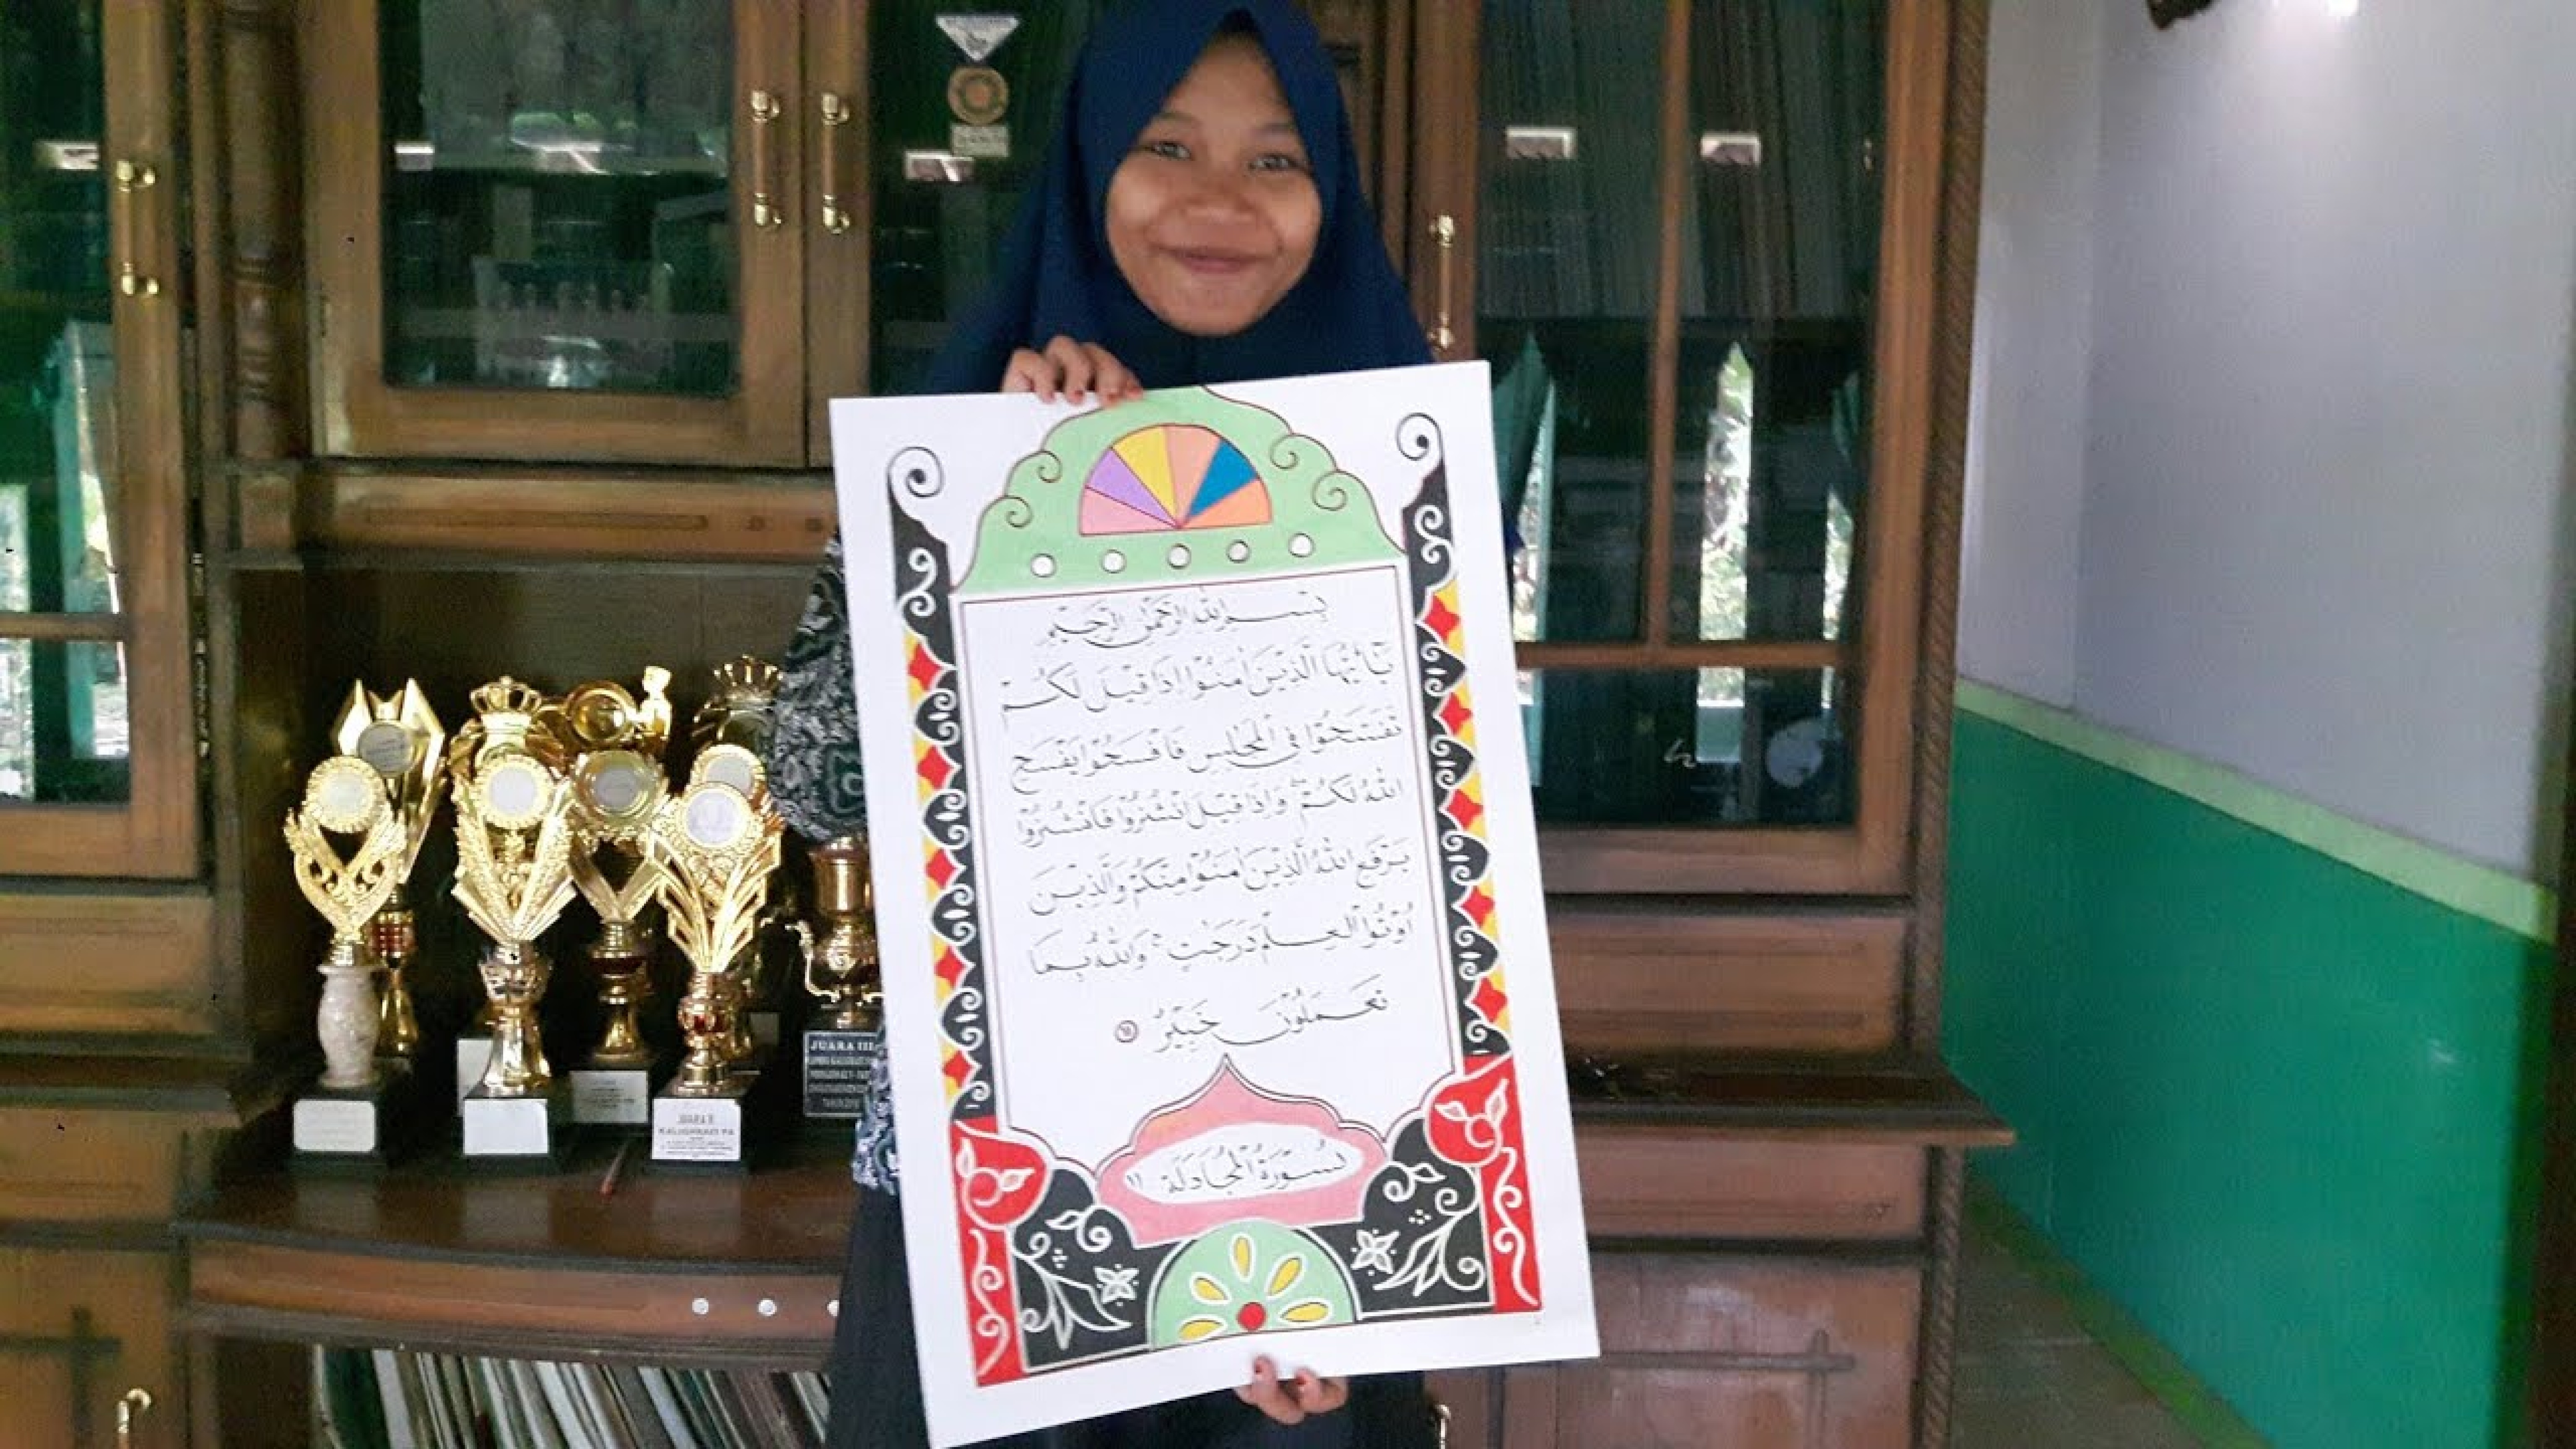 بِسْمِ اللهِ الرَّحْمٰنِ الرَّحِيْمِ
يٰٓاَيُّهَا الَّذِيْنَ اٰمَنُوْا اِذَا قِيْلَ لَكُمْ
تَفَسَّحُوْا فِى الْمَجٰلِسِ فَافْسَحُوْا يَفْسَحِ
اللهُ لَكُمْ ۚ وَاِذَا قِيْلَ انْشُزُوْا فَانْشُزُوْا
يَرْفَعِ اللهُ الَّذِيْنَ اٰمَنُوْا مِنْكُمْ وَالَّذِيْنَ
اُوْتُوا الْعِلْمَ دَرَجٰتٍ ۗ وَاللهُ بِمَا
تَعْمَلُوْنَ خَبِيْرٌ ١١
سُوْرَةُ الْمُجَادَلَة ١١
JUARA III
JUARA II
KALIGRAFI PA